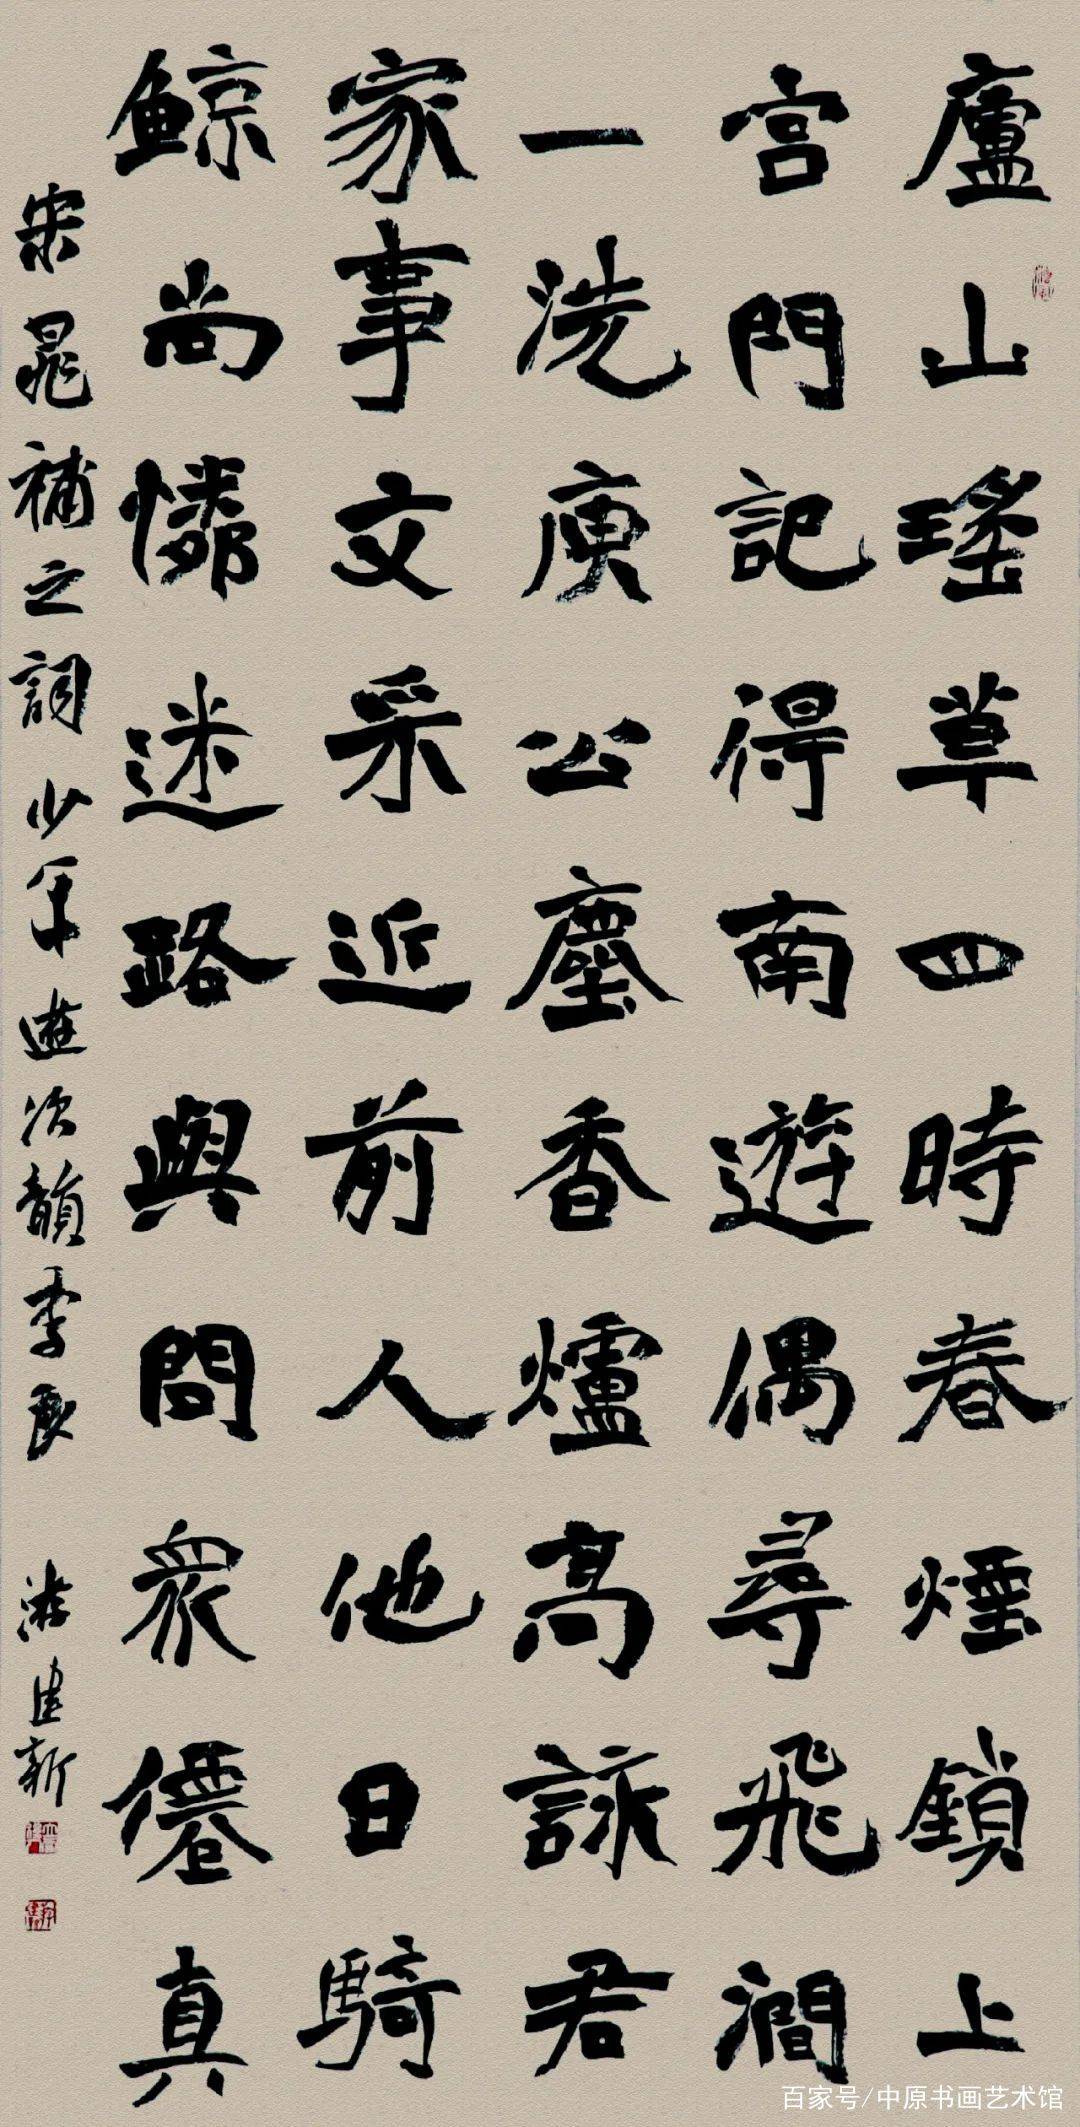 廬山瑤草四時春煙鎖上
宮門記得南遊偶尋飛澗
一洗庾公塵香爐高詠君
家事文采近前人他日騎
鯨尚憐迷路與問衆僊真
宋晁補之詞少年遊次韻季良 游建新
百家号/中原书画艺术馆